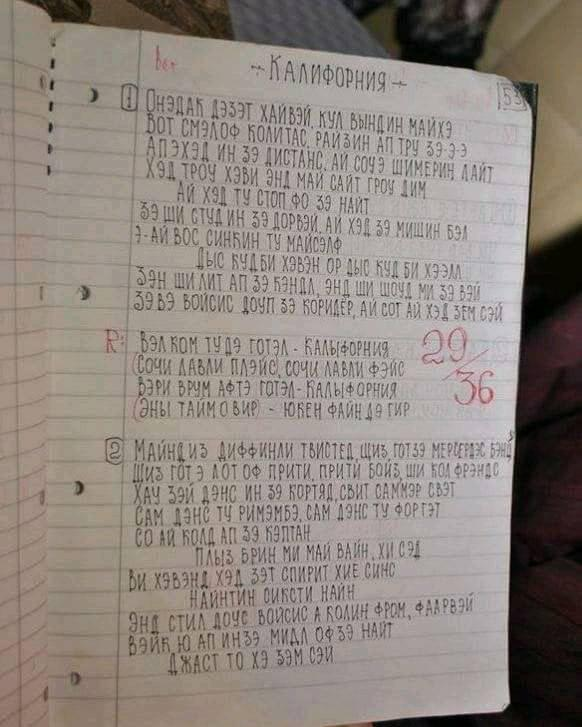 Вет
- Калифорния -
53
1 Онэдак дэзэт хайвэй, кул вындин майхэ
Вот смэлоф колитас, райзин ап тру зэ-э-э
Апэхэд ин зэ дистанс, ай соуэ шимерин лайт
Хэд троу хэви энд май сайт гроу дим
Ай хэд ту стоп фо зэ найт
Зэ ши студ ин зэ дорвэй, ай хэд зэ мишин бэл
Э-ай вос синкин ту майсэлф
Дыс куд би хэвэн ор дыс куд би хээлл
Зэн ши лит ап зэ кэндл, энд ши шоуд ми зэ вэй
Зэ вэ войсис доуп зэ коридёр, ай сот ай хэд зем сэй
R: Вэлком ту дэ готэл - Калыфорния
(Сочи лавли плэйс), сочи лавли фэйс
Вэри врум афтэ готэл - Калыфорния
(Эны тайм о вир) - юкен файн дэ гир
29/36
2 Майнд из диффинли твистед, щиз готзэ мерседэс бэнц
Щиз гот э лот оф прити, прити бойз, ши кол фрэндс
Хау зэй дэнс ин зэ кортяд, свит саммэр свэт
Сам дэнс ту римэмбэ, сам дэнс ту форгэт
Со ай колд ап зэ кэптан
Плыз брин ми май вайн, хи сэд
Ви хэвэнд хэд зэт спирит хие синс
Найнтин сиксти найн
Энд стил доус войсис а колин фром, фаарвэй
Вэйк ю ап инзэ мидл оф зэ найт
Джаст то хэ зэм сэй